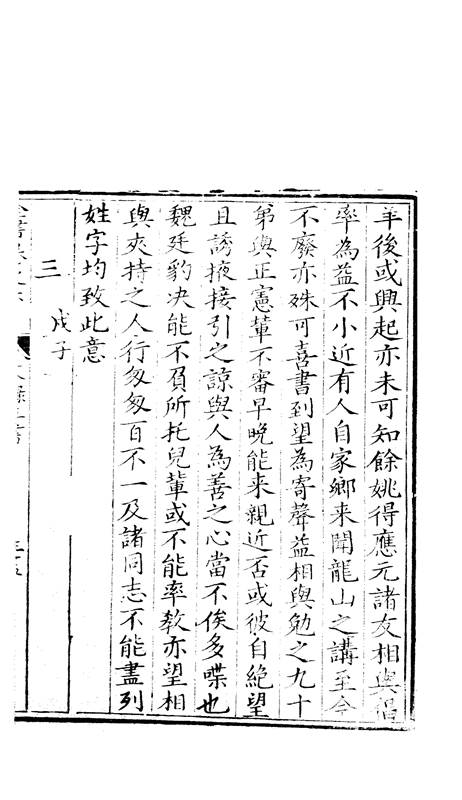 羊後或興起亦未可知餘姚得應元諸友相與倡
率為益不小近有人自家鄉来聞龍山之講至今
不廢亦殊可喜書到望為寄聲益相與勉之九十
弟與正憲輩不審早晩能来親近否或彼自絶望
且誘掖接引之諒與人為善之心當不俟多喋也
魏廷豹决能不負所托兒輩或不能率教亦望相
與夾持之人行匆匆百不一及諸同志不能盡列
姓字均致此意
三 戊子